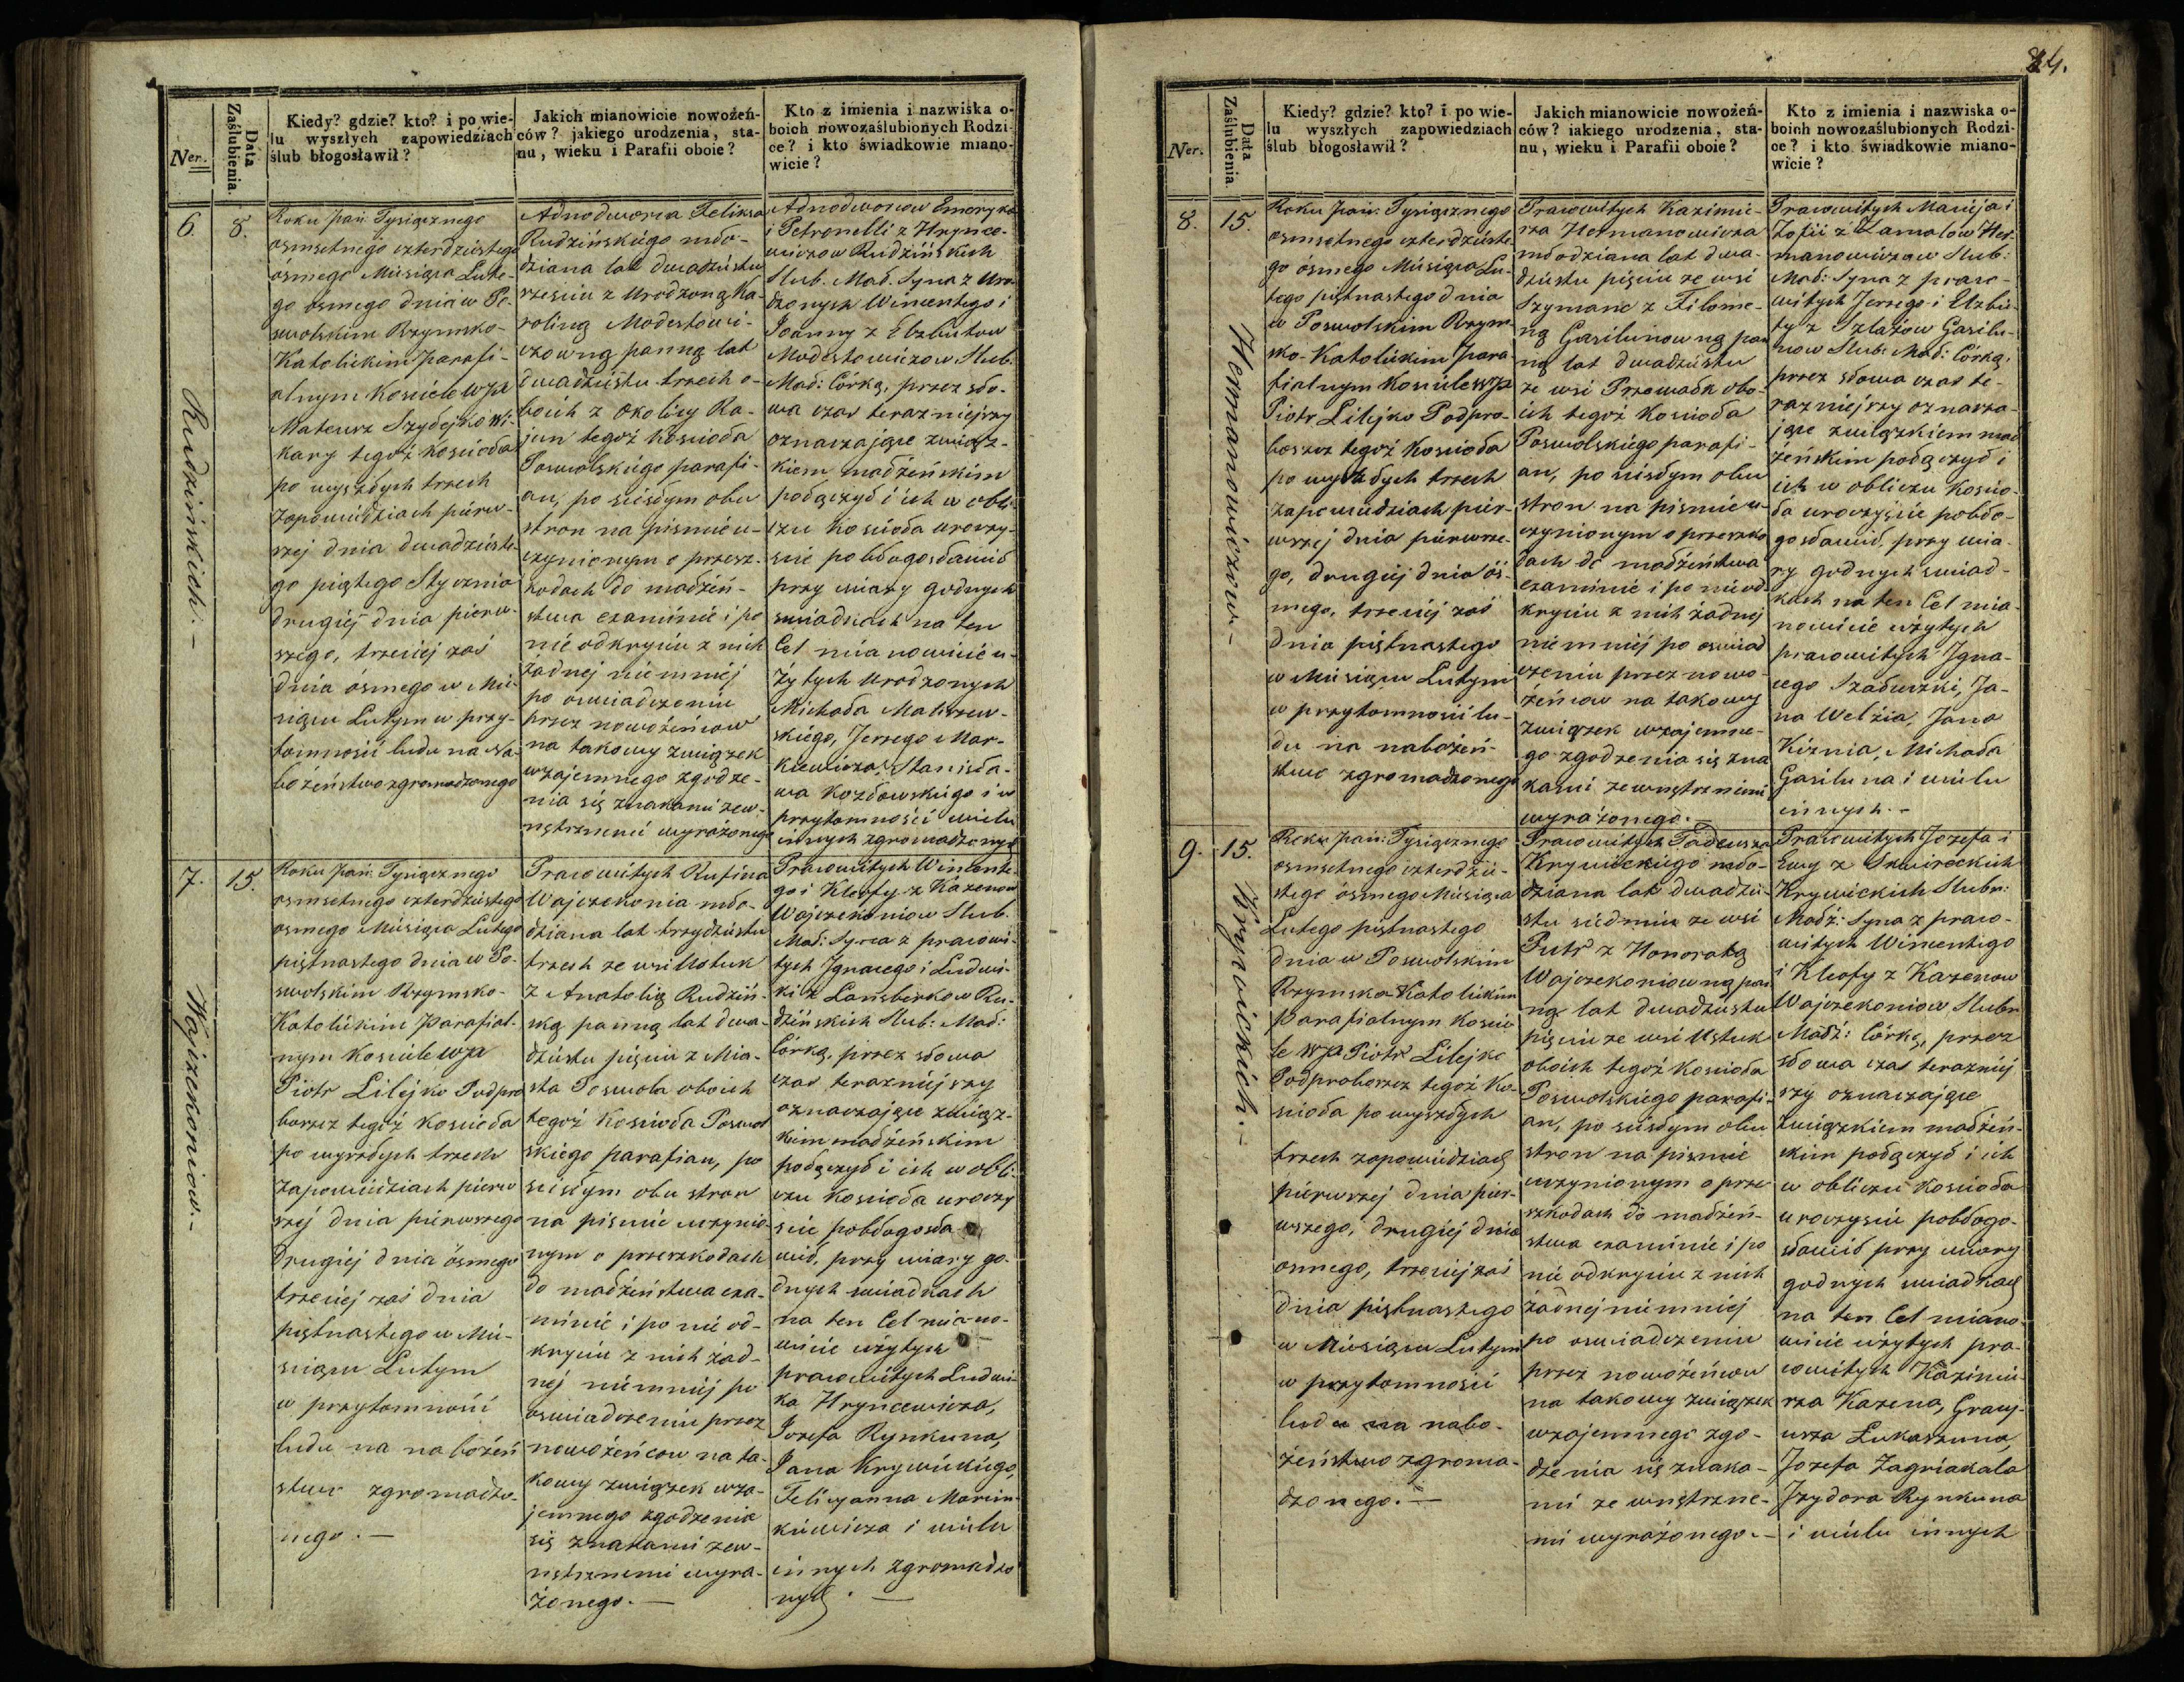 84.
Ner.
Data Zaślubienia.
Kiedy? gdzie? kto? i po wie-
lu wyszłych zapowiedziach
ślub błogosławił?
Jakich mianowicie nowożeń-
ców? jakiego urodzenia, sta-
nu, wieku i Parafii oboie?
Kto z imienia i nazwiska o-
boich nowozaślubionych Rodzi-
ce? i kto świadkowie miano-
wicie?
6.
8.
Rudzińskich.-
Roku pań: Tysiącznego
osmsetnego czterdziestego
ósmego Miesiąca Lute-
go ósmego dnia w Po-
swolskim Rzymsko-
Katolickim parafi-
alnym Kościele WJX
Mateusz Szydejko Wi-
kary tegoż Kościoła
po wyszłych trzech
zapowiedziach pierw-
szej dnia dwadzieste-
go piątego Stycznia
drugiej dnia pierw-
szego, trzeciej zaś
dnia ósmego w Mie-
siącu Lutym w przy-
tomności ludu na Na-
bożeństwo zgromadzonego
Adnodworca Felixa
Rudzińskiego mło-
dziana lat dwadziestu
sześciu z Urodzoną Ka-
roliną Modestowi-
czowną panną lat
dwadziestu trzech o-
boich z Okolicy Ra-
jun tegoż Kościoła
Poswolskiego parafi-
an, po ścisłym obu
stron na pismie u-
czynionym o przesz-
kodach do małżeń-
stwa examinie i po
nie odkryciu z nich
żadnej niemniej
po oswiadczeniu
przez nowożeńcow
na takowy związek
wzajemnego zgodze-
nia się znakami zew-
nętrznemi wyrażonego
Adnodworcow Emeryka
i Petronelli z Hrynce-
wiczow Rudzińskich
Slub. Mał. Syna z Uro-
dzonych Wincentego i
Joanny z Elzbutow
Modestowiczow Slub.
Mał: Córką, przez sło-
wa czas terazniejszy
oznaczające związ-
kiem małżeńskim
połączył i ich w obli-
czu Kościoła uroczy-
ście pobłogosławił
przy wiary godnych
swiadkach na ten
Cel mianowicie u-
żytych Urodzonych
Michała Maliszew-
skiego, Jerzego Mar-
kiewicza, Stanisła-
wa Kozłowskiego i w
przytomności wielu
innych zgromadzonych
7.
15.
Wajczekoniow.-
Roku pań: Tysiącznego
osmsetnego czterdziestego
osmego Miesiąca Lutego
piętnastego dnia w Po-
swolskim Rzymsko-
Katolickim Parafial-
nym Kościele WJX
Piotr Lilejko Podpro
boszcz tegoż Kościoła
po wyszłych trzech
Zapowiedziach pierw
szej dnia pierwszego
drugiej dnia ósmego
trzeciej zaś dnia
piętnastego w Mie-
siącu Lutym
w przytomności
ludu na nabożeń
stwo zgromadzo-
nego.-
Pracowitych Rufina
Wajczekonia mło-
dziana lat trzydziestu
trzech ze wsi Ustuk
z Anatolią Rudziń-
ską panną lat dwa-
dziestu pięciu z Mia-
sta Poswola oboich
tegoż Kościoła Poswol
skiego parafian, po
scisłym obu stron
na pismie uczynio-
nym o przeszkodach
do małżeństwa exa-
minie i po nie od-
kryciu z nich żad-
nej niemniej po
oswiadczeniu przez
nowożeńcow na ta-
kowy związek wza-
jemnego zgodzenia
się znakami zew-
nętrznemi wyra-
żonego.-
Pracowitych Wincente-
go i Kleofy z Kazenow
Wajczekoniow Slub.
Mał: Syna z pracowi-
tych Ignacego i Ludwi-
ki z Lansberkow Ru-
dzińskich Slub: Mał:
Córką, przez słowa
czas terazniejszy
oznaczające związ-
kiem małżeńskim
połączył i ich w obli-
czu Kościoła uroczy
scie pobłogosła
wił, przy wiary go-
dnych swiadkach
na ten Cel miano-
wicie użytych
pracowitych Ludwi-
ka Hryncewicza,
Jozefa Rynkuna,
Jana Krywickiego,
Felicyanna Marcin-
kiewicza i wielu
innych zgromadzo
nych.-
Ner.
Data Zaślubienia
Kiedy? gdzie? kto? i po wie-
lu wyszłych zapowiedziach
ślub błogosławił?
Jakich mianowicie nowożeń-
ców? iakiego urodzenia, sta-
nu, wieku i Parafii oboie?
Kto z imienia i nazwiska o-
boich nowozaślubionych Rodzi-
ce? i kto świadkowie miano-
wicie?
8.
15.
Hermanowiczow.-
Roku pań: Tysiącznego
osmsetnego czterdzieste
go ósmego Miesiąca Lu-
tego piętnastego dnia
w Poswolskim Rzym-
sko-Katolickim para-
fialnym Kościele WJX
Piotr Lilejko Podpro-
boszcz tegoż Kościoła
po wyszłych trzech
zapowiedziach pier-
wszej dnia pierwsze-
go, drugiej dnia ós-
mego, trzeciej zaś
dnia piętnastego
w Miesiącu Lutym
w przytomności lu-
du na nabożeń-
stwo zgromadzonego
Pracowitych Kazimie-
rza Hermanowicza
młodziana lat dwa-
dziestu pięciu ze wsi
Szymanc z Filome-
ną Gasilunowną pan
ną lat dwadziestu
ze wsi Przewałk obo-
ich tegoż Kościoła
Poswolskiego parafi-
an, po scisłym obu
stron na pismie u-
czynionym o przeszko
dach do małżeństwa
examinie i po nieod-
kryciu z nich żadnej
niemniej po oswiad
czeniu przez nowo-
żeńcow na takowy
związek wzajemne-
go zgodzenia się zna
kami zewnętrznemi
wyrażonego.-
Pracowitych Macieja i
Zofii z Zamalów Her-
manowiczow Slub:
Mał: Syna z praco-
witych Jerzego i Elzbie-
ty z Szlażow Gasilu-
now Slub: Mał: Córką,
przez słowa czas te-
razniejszy oznacza-
jące związkiem mał
żeńskim połączył i
ich w obliczu Kościo-
ła uroczyscie pobło-
gosławił, przy wia-
ry godnych swiad-
kach na ten Cel mia-
nowicie użytych
pracowitych Igna-
cego Szaduszki, Ja-
na Welżia, Jana
Kiznia, Michała
Gasiluna i wielu
innych.-
9.
15.
Krywickich.-
Roku pań: Tysiącznego
osmsetnego czterdzie-
stego ósmego Miesiąca
Lutego piętnastego
dnia w Poswolskim
Rzymsko Katolickim
parafialnym Koscie
le WJX Piotr Lilejko
Podproboszcz tegoż Ko-
scioła po wyszłych
trzech zapowiedziach
pierwszej dnia pier-
wszego, drugiej dnia
osmego, trzeciej zaś
dnia piętnastego
w Miesiącu Lutym
w przytomności
ludu na nabo-
żeństwo zgroma-
dzonego.-
Pracowitych Tadeusza
Krywickiego mło-
dziana lat dwadzie-
stu siedmiu ze wsi
Putr z Honoratą
Wajczekoniowną pan
ną lat dwadziestu
pięciu ze wsi Ustuk
oboich tegoż Kościoła
Poswolskiego parafi-
an, po scisłym obu
stron na pismie
uczynionym o prze
szkodach do małżeń-
stwa examinie i po
nie odkryciu z nich
żadnej niemniej
po oswiadczeniu
przez nowożeńcow
na takowy związek
wzajemnego zgo-
dzenia się znaka-
mi ze wnętrzne-
mi wyrażonego.-
Pracowitych Jozefa i
Ewy z Skwireckich
Krywickich Slubn:
Małż: Syna z praco-
witych Wincentego
i Kleofy z Kazenow
Wajczekoniow Slubn
Małż: Córką, przez
słowa czas terazniej
szy oznaczające
związkiem małżeń-
skim połączył i ich
w obliczu Kościoła
uroczyscie pobłogo-
sławił przy wiary
godnych swiadkach
na ten Cel miano-
wicie użytych pra-
cowitych Kazimie-
rza Kazena, Grawy-
usza Łukaszuna,
Jozefa Zagriakala
Jzydora Rynkuna
i wielu innych